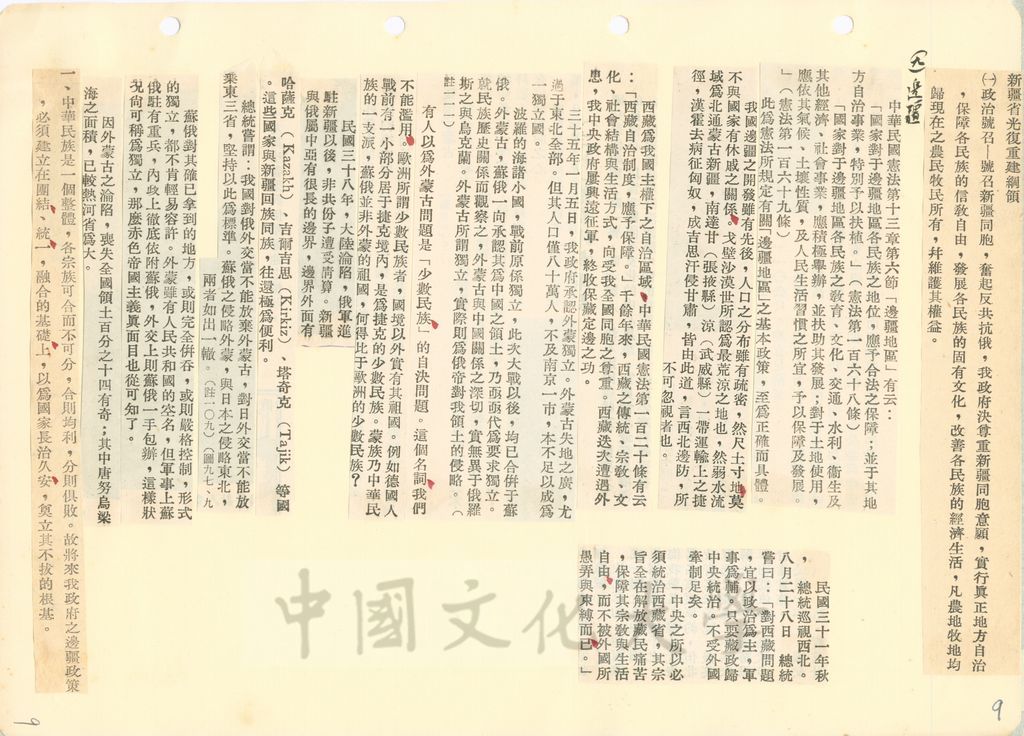 新疆省光復重建綱領
㈠政治號召─號召新疆同胞，奮起反共抗俄，我政府決尊重新疆同胞意願，實行眞正地方自治
，保障各民族的信敎自由，發展各民族的固有文化，改善各民族的經濟生活，凡農地牧地均
歸現在之農民牧民所有，幷維護其權益。
邊疆
中華民國憲法第十三章第六節「邊疆地區」有云：
「國家對于邊疆地區各民族之地位，應予合法之保障；並于其地
方自治事業，特別予以扶植。」（憲法第一百六十八條）
「國家對于邊疆地區各民族之敎育、文化、交通、水利、衞生及
其他經濟、社會事業，應積極舉辦，並扶助其發展；對于土地使用，
應依其氣候、土壤性質，及人民生活習慣之所宜，予以保障及發展。
」（憲法第一百六十九條）
此爲憲法所規定有關「邊疆地區」之基本政策，至爲正確而具體。
我國邊疆之開發雖有先後，人口之分布雖有疏密，然尺土寸地莫
不與國家有休戚之關係。戈壁沙漠世所認爲最荒涼之地也，然弱水流
域爲北通蒙古新疆，南達甘（張掖縣）涼（武威縣）一帶運輸上之捷
徑，漢霍去病征匈奴，成吉思汗侵甘肅，皆由此道，言西北邊防，所
不可忽視者也。
西藏爲我國主權下之自治區域，中華民國憲法第一百二十條有云
：「西藏自治制度，應予保障。」千餘年來，西藏之傳統、宗敎、文
化、社會結構與生活方式，向受我全國同胞之尊重。西藏迭次遭遇外
患，我中央政府屢興遠征軍，終收保藏定邊之功。
民國三十一年秋
，總統巡視西北。
八月二十八日　總統
嘗曰：「對西藏問題
，宜以政治爲主，軍
事爲輔。只要藏政歸
中央統治，不受外國
牽制足矣。
「中央之所以必
須統治西藏省，其宗
旨全在解放藏民痛苦
，保障其宗敎與生活
自由，而不被外國所
愚弄與束縛而已。」
三十五年一月五日，我政府承認外蒙獨立。外蒙古失地之廣，尤
過于東北全部。但其人口僅八十萬人，不及南京一市，本不足以成爲
一獨立國。
波羅的海諸小國，戰前原係獨立，此次大戰以後，均已合倂于蘇
俄。外蒙古，蘇俄一向承認其爲中國之領土，乃亟亟代爲要求獨立。
就民族歷史關係而觀察之，外蒙古與中國關係之深切，實無異于俄羅
斯之與烏克蘭。外蒙古所謂獨立，實際則爲俄帝對我領土的侵略。（
註一一一）
有人以爲外蒙古問題是「少數民族」的自決問題。這個名詞我們
不能濫用。歐洲所謂少數民族者，國境以外實有其祖國。例如德國人
戰前有一小部分居于捷克境內，是爲捷克的少數民族。蒙族乃中華民
族的一支派，蘇俄並非外蒙的祖國，何得比于歐洲的少數民族？
民國三十八年，大陸淪陷，俄軍進
駐新疆以後，非共份子遭受清算。新疆
與俄屬中亞有很長的邊界，邊界外面有
哈薩克（Kazakh）、吉爾吉思（Kirkiz）、塔奇克（Tajik）等國
。這些國家與新疆回族同族，往還極爲便利。
總統嘗謂：我國對俄外交當不能放棄外蒙古，對日外交當不能放
棄東三省，堅持以此爲標準。蘇俄之侵略外蒙，與日本之侵略東北，
兩者如出一轍。（註一〇九）（圖九七、九
蘇俄對其確已拿到的地方，或則完全倂吞，或則嚴格控制，形式
的獨立，都不肯輕易容許。外蒙雖有人民共和國的空名，但軍事上蘇
俄駐有重兵，內政上徹底依附蘇俄，外交上則蘇俄一手包辦，這樣狀
況尙可稱爲獨立，那麼赤色帝國主義眞面目也從可知了。
因外蒙古之淪陷，喪失全國領土百分之十四有奇；其中唐努烏梁
海之面積，已較熱河省爲大。
一、中華民族是一個整體，各宗族可合而不可分，合則均利，分則俱敗。故將來我政府之邊疆政策
，必須建立在團結、統一，融合的基礎上，以爲國家長治久安，奠立其不拔的根基。
中國文化大學
9